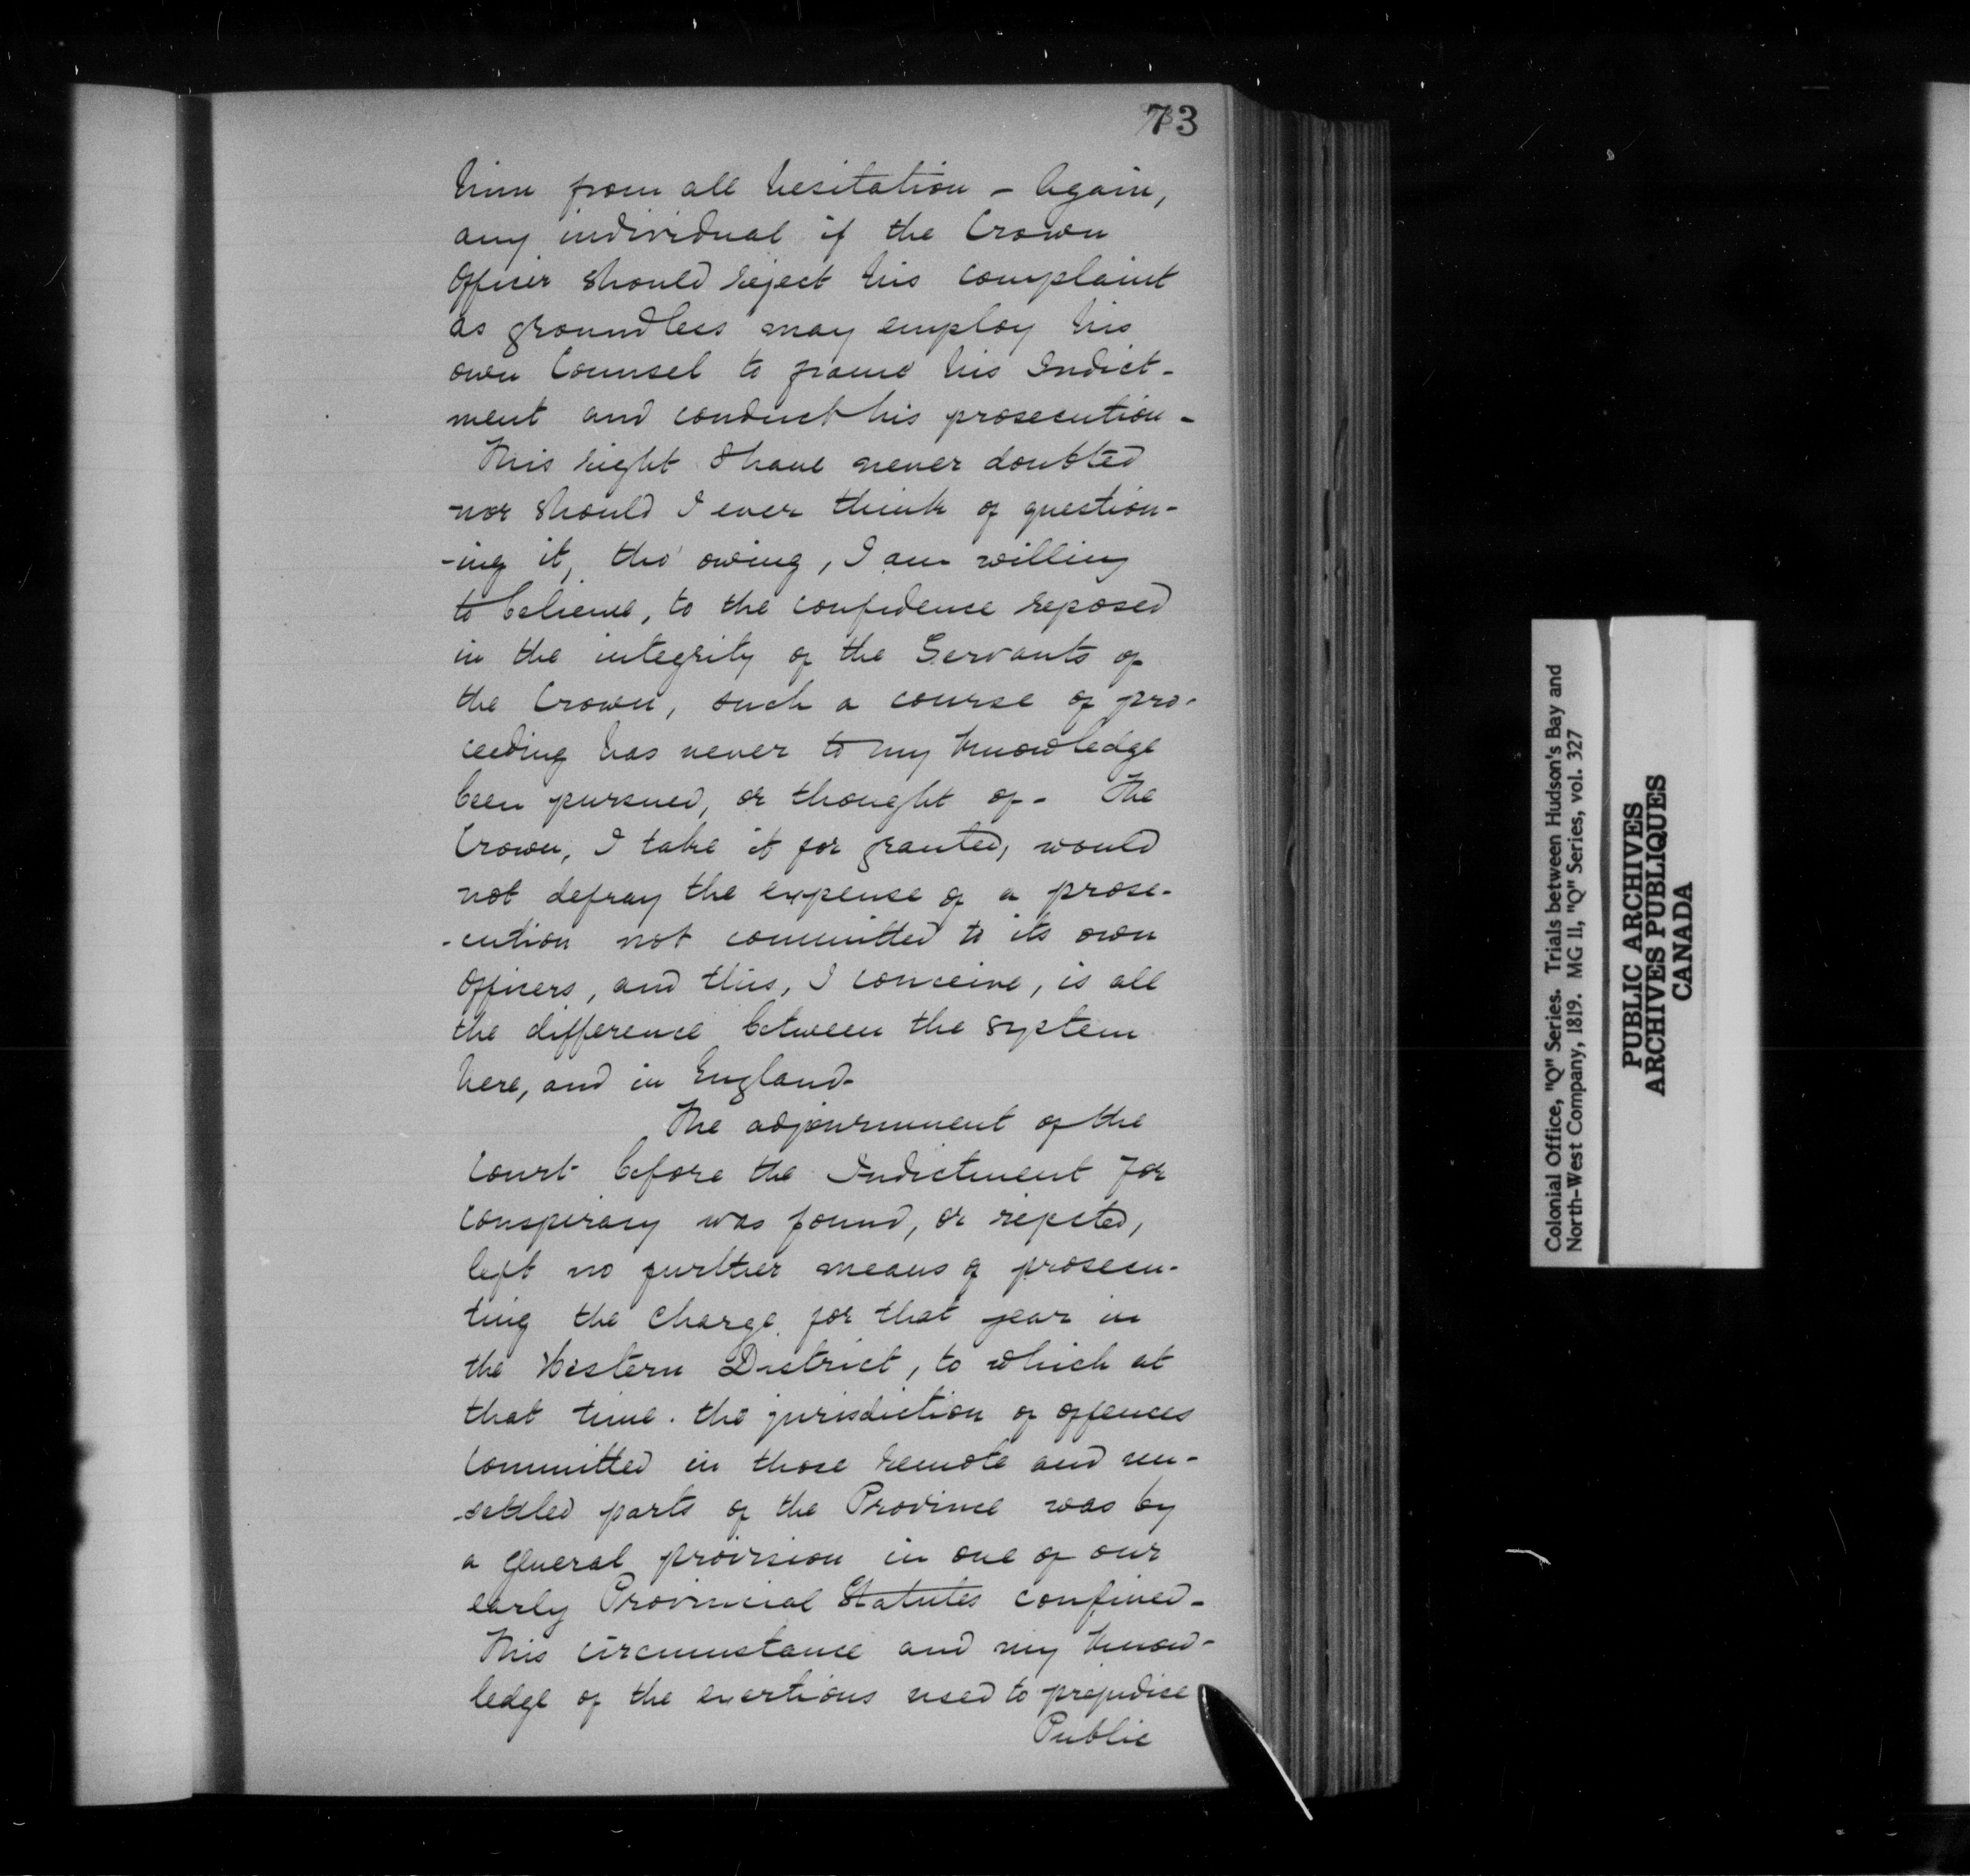 73
him from all hesitation - Again,
any individual if the Crown
Officer should reject his complaint
as groundless may employ his
own Counsel to frame his Indict-
ment and conduct his prosecution -
This right I have never doubted
nor should I ever think of question-
-ing it, tho' owing, I am willing
to believe, to the confidence reposed
in the integrity of the Servants of
the Crown, such a course of pro-
ceeding has never to my knowledge
been pursued, or thought of - The
Crown, I take it for granted, would
not defray the expense of a prose-
-cution not committed to its own
Officers, and this, I conceive, is all
the difference between the system
here, and in England -
The adjournment of the
Court before the Indictment for
Conspiracy was found, or rejected,
left no further means of prosecu-
ting the charge for that year in
the Western District, to which at
that time . the jurisdiction of offences
Committed in those remote and un-
settled parts of the Province was by
a general provision in one of our
early Provincial Statutes confined -
This circumstance and my know-
ledge of the exertions used to prejudice
Public
Colonial Office, "Q" Series. Trials between Hudson's Bay and
North-West Company, 1819. MG 11, "Q" Series, vol. 327
PUBLIC ARCHIVES
ARCHIVES PUBLIQUES
CANADA